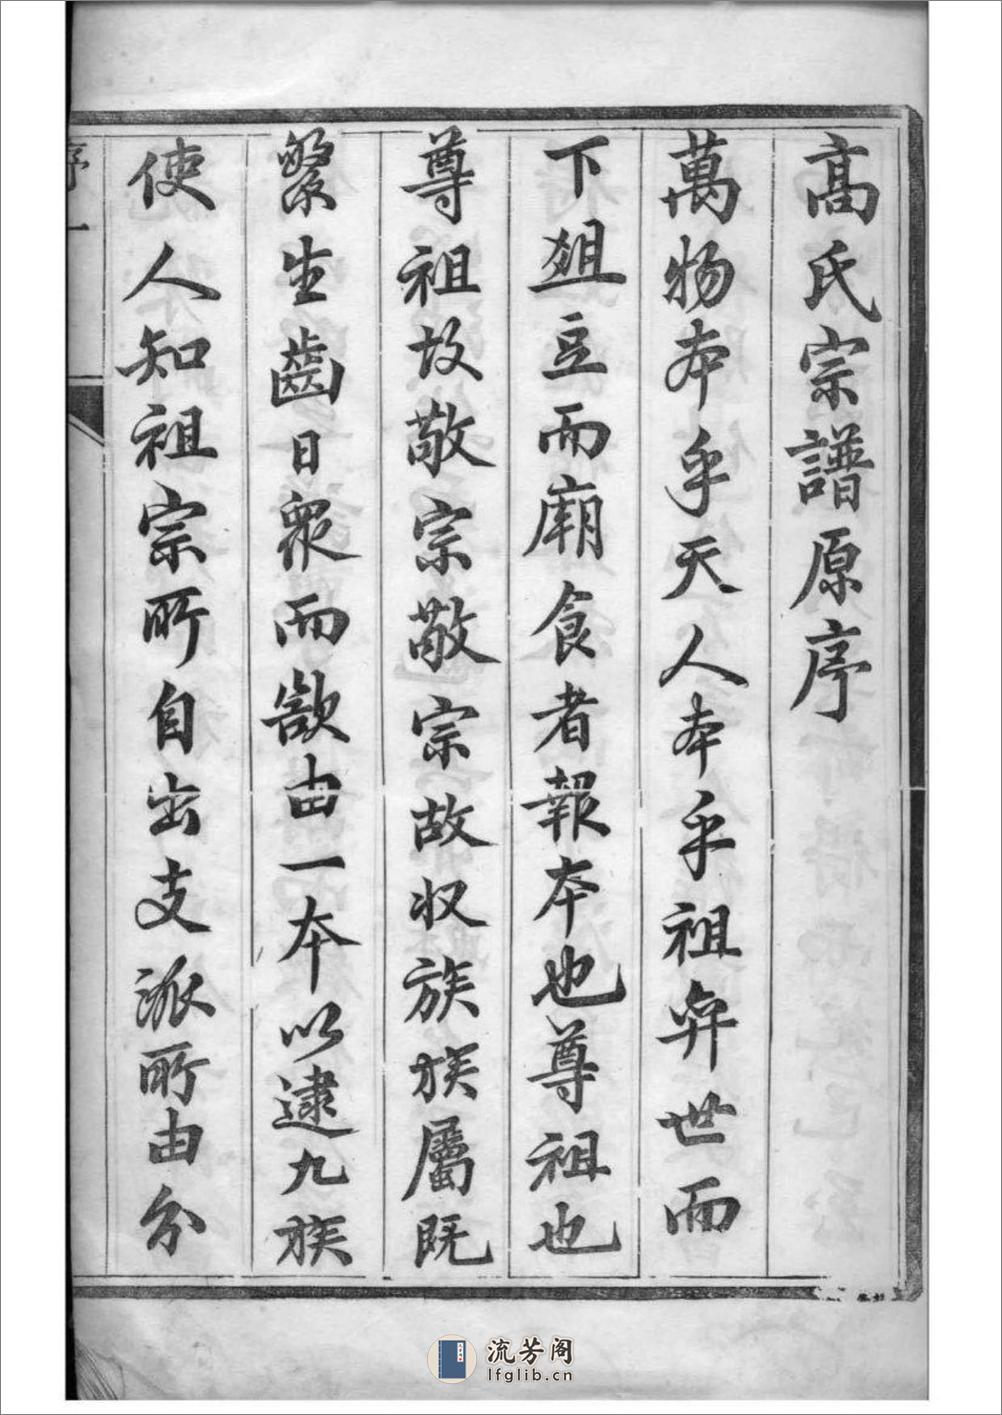 高氏宗譜原序
萬物本乎天人本乎祖弈世而
下俎豆而廟食者報本也尊祖也
尊祖故敬宗敬宗故收族族屬既
繁生齒日衆而欲由一本以逮九族
使人知祖宗所自出支派所由分
序 一
流芳阁
lfglib.cn